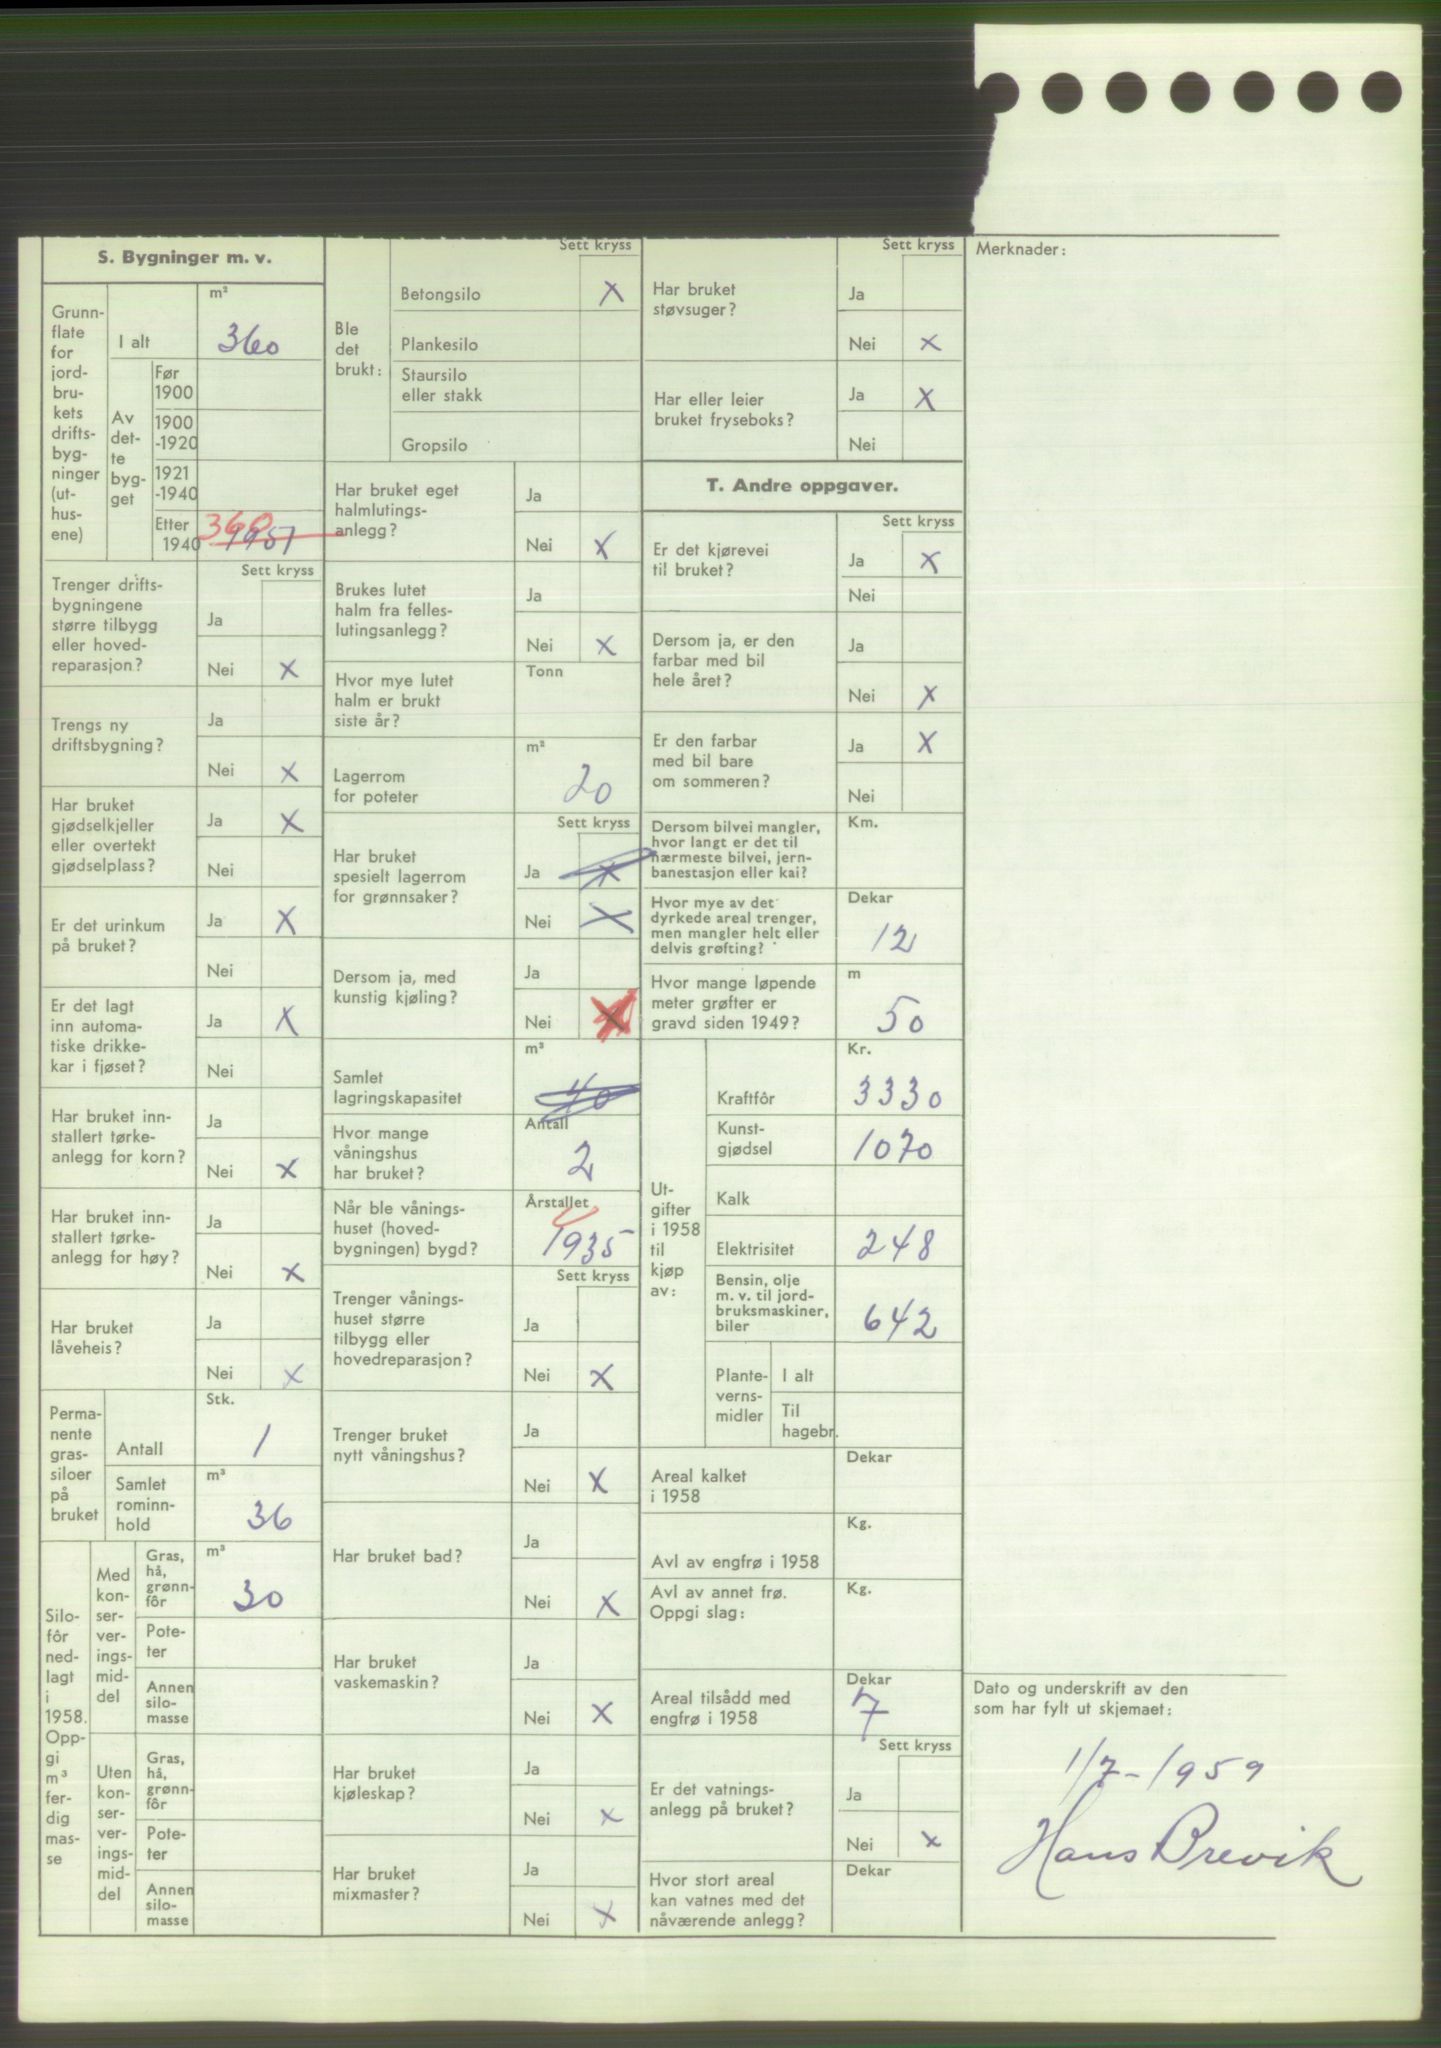 S. Bygninger m. v.
Grunn-
flate
for
jord-
bru-
kets
drifts-
byg-
ninger
(ut-
hus-
ene)
I alt
m²
360
Av
det-
te
byg-
get
Før
1900
1900
-1920
1921
-1940
Etter
1940
360
1951
Sett kryss
Trenger drifts-
bygningene
større tilbygg
eller hoved-
reparasjon?
Ja
Nei X
Trengs ny
driftsbygning?
Ja
Nei X
Har bruket
gjødselkjeller
eller overtekt
gjødselplass?
Ja X
Nei
Er det urinkum
på bruket?
Ja X
Nei
Er det lagt
inn automa-
tiske drikke-
kar i fjøset?
Ja X
Nei
Har bruket inn-
stallert tørke-
anlegg for korn?
Ja
Nei X
Har bruket inn-
stallert tørke-
anlegg for høy?
Ja
Nei X
Har bruket
låveheis?
Ja
Nei X
Perma-
nente
gras-
siloer
på
bruket
Antall
Stk.
1
Samlet
rominn-
hold
m³
36
Silo-
fôr
ned-
lagt
i
1958.
Opp-
gi
m³
fer-
dig
mas-
se
Med
kon-
ser-
ver-
ings-
mid-
del
Gras,
hå,
grønn-
fôr
m³
30
Pote-
ter
Annen
silo-
masse
Uten
kon-
ser-
ver-
ings-
mid-
del
Gras,
hå,
grønn-
fôr
Pote-
ter
Annen
silo-
masse
Sett kryss
Ble
det
brukt:
Betongsilo X
Plankesilo
Staursilo
eller stakk
Gropsilo
Har bruket eget
halmlutings-
anlegg?
Ja
Nei X
Brukes lutet
halm fra felles-
lutingsanlegg?
Ja
Nei X
Hvor mye lutet
halm er brukt
siste år?
Tonn
Lagerrom
for poteter
m²
20
Sett kryss
Har bruket
spesielt lagerrom
for grønnsaker?
Ja X
Nei X
Dersom ja, med
kunstig kjøling?
Ja
Nei X
Samlet
lagringskapasitet
m³
40
Hvor mange
våningshus
har bruket?
Antall
2
Når ble vånings-
huset (hoved-
bygningen) bygd?
Årstallet
1935
Sett kryss
Trenger vånings-
huset større
tilbygg eller
hovedreparasjon?
Ja
Nei X
Trenger bruket
nytt våningshus?
Ja
Nei X
Har bruket bad?
Ja
Nei X
Har bruket
vaskemaskin?
Ja
Nei X
Har bruket
kjøleskap?
Ja
Nei X
Har bruket
mixmaster?
Ja
Nei X
Sett kryss
Har bruket
støvsuger?
Ja
Nei X
Har eller leier
bruket fryseboks?
Ja X
Nei
T. Andre oppgaver.
Sett kryss
Er det kjørevei
til bruket?
Ja X
Nei
Dersom ja, er den
farbar med bil
hele året?
Ja
Nei X
Er den farbar
med bil bare
om sommeren?
Ja X
Nei
Dersom bilvei mangler,
hvor langt er det til
nærmeste bilvei, jern-
banestasjon eller kai?
Km.
Hvor mye av det
dyrkede areal trenger,
men mangler helt eller
delvis grøfting?
Dekar
12
Hvor mange løpende
meter grøfter er
gravd siden 1949?
m
50
Ut-
gifter
i 1958
til
kjøp
av:
Kr.
Kraftfôr 3330
Kunst-
gjødsel 1070
Kalk
Elektrisitet 248
Bensin, olje
m. v. til jord-
bruksmaskiner,
biler 642
Plante-
verns-
midler
I alt
Til
hagebr.
Areal kalket
i 1958
Dekar
Avl av engfrø i 1958
Kg.
Avl av annet frø.
Oppgi slag:
Kg.
Areal tilsådd med
engfrø i 1958
Dekar
7
Sett kryss
Er det vatnings-
anlegg på bruket?
Ja
Nei X
Hvor stort areal
kan vatnes med det
nåværende anlegg?
Dekar
Merknader:
Dato og underskrift av den
som har fylt ut skjemaet:
1/7-1959
Hans Brevik